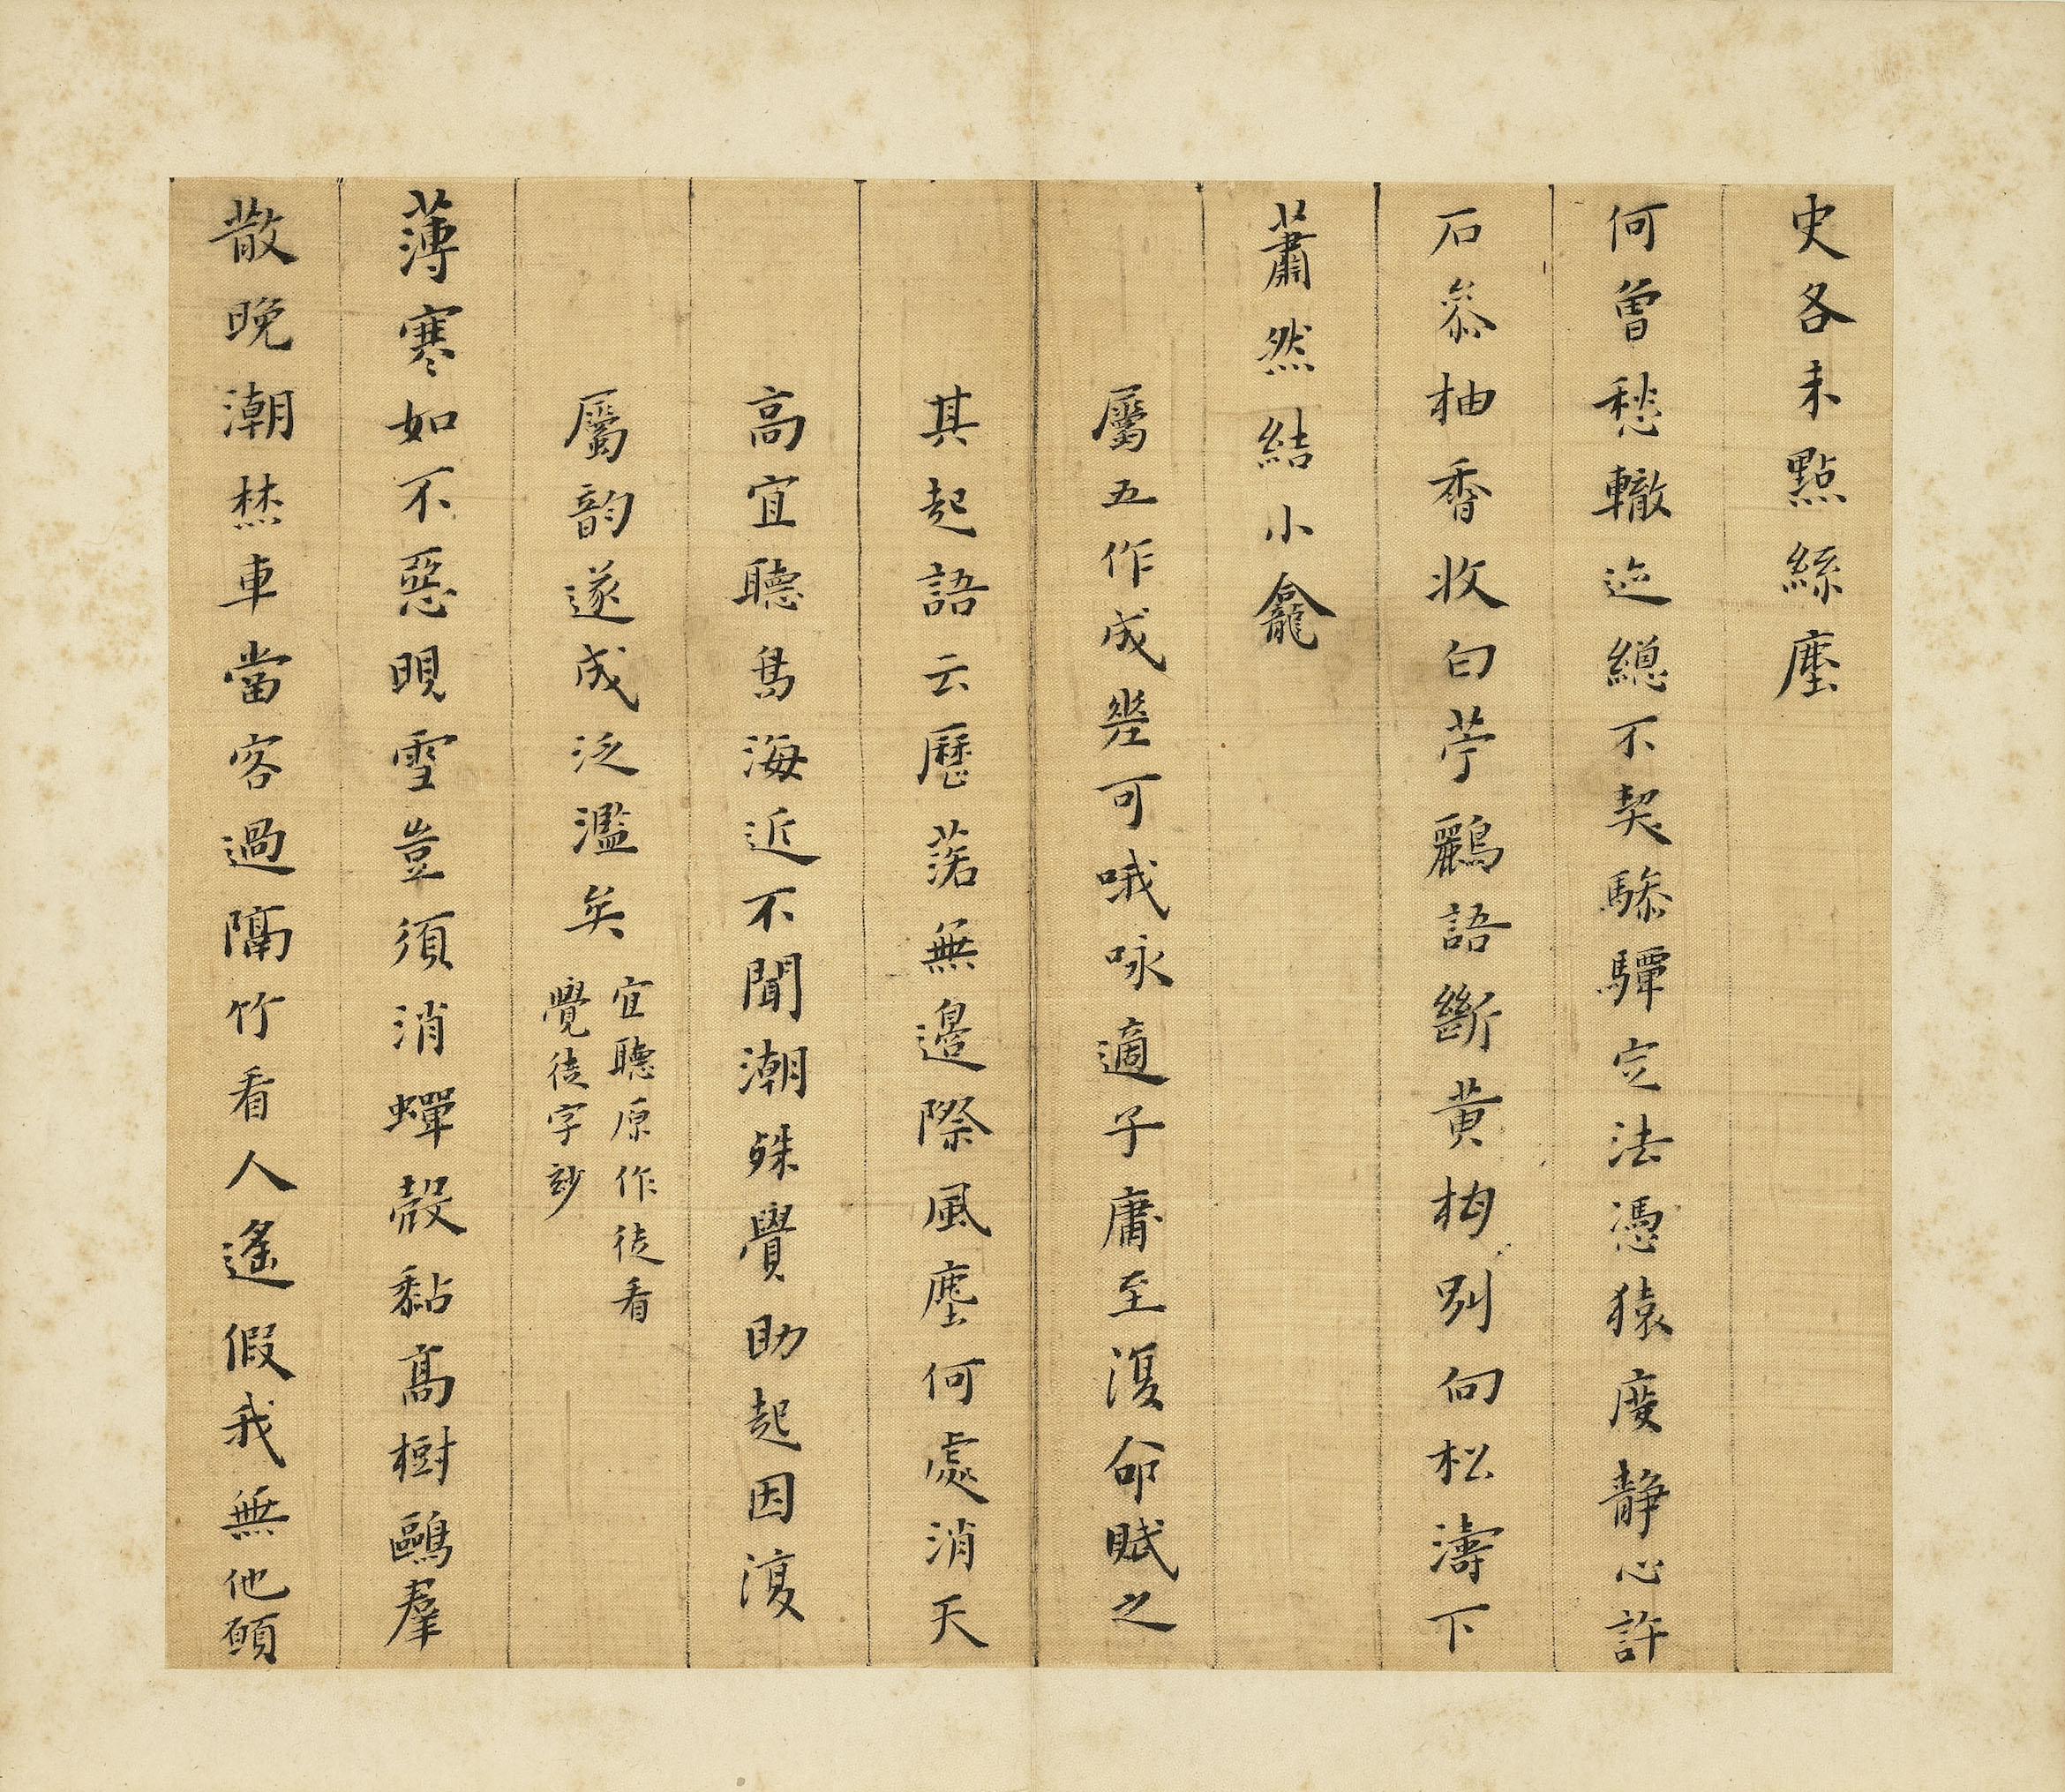 史各未點絲塵
何曾愁轍迹總不契驂驔定法憑猿度靜心許
石叅柚香收白苧鸝語斷黃柑別向松濤下
蕭然結小龕
屬五作成㘴可哦咏適子庸至復命賦之
其起語云歷落無邊際風塵何處消天
高宜聽鳥海近不聞潮殊覺助起因復
屬韵遂成泛濫矣
宜聽原作徒看
覺徒字玅
薄寒如不惡晛雪豈須消蟬殼黏高樹鷗羣
散晚潮焚車當客過隔竹看人遙假我無他願